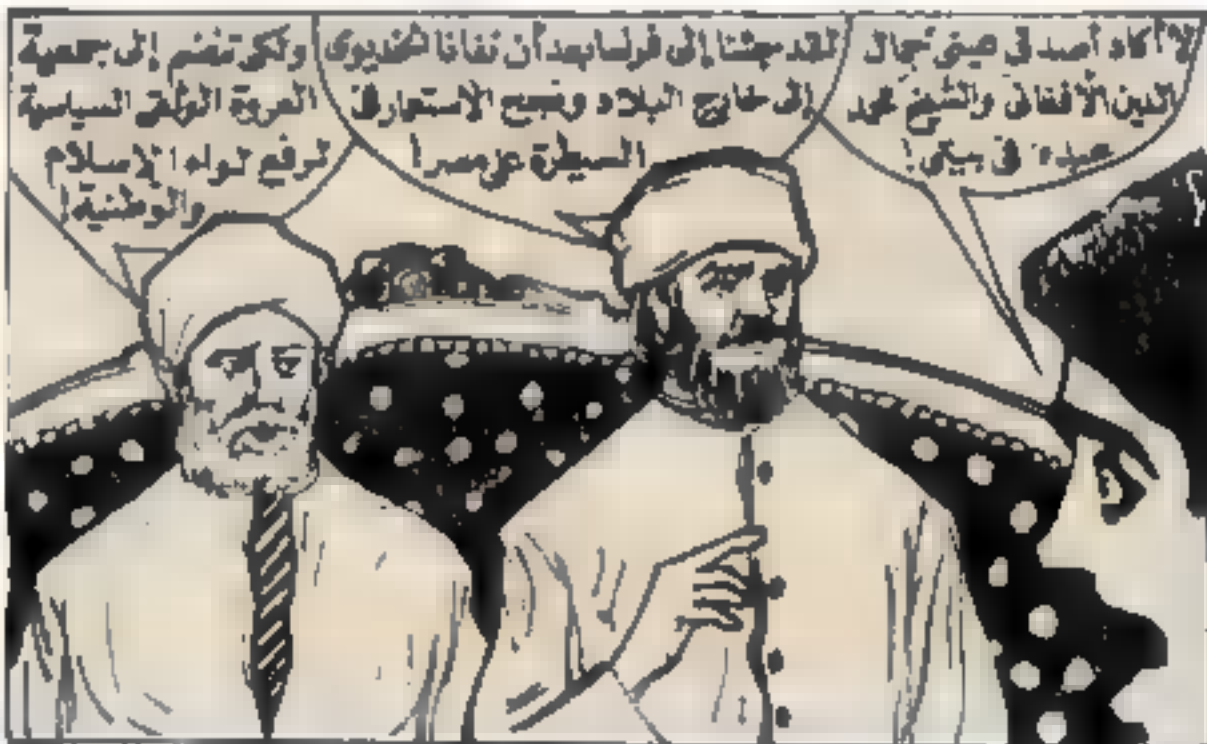 لا أكاد أصدق عيني جمال
الدين الأفغاني والشيخ محمد
عبده في بيتي!
لقد جئنا إلى فرنسا بعد أن نفانا الخديوي
إلى خارج البلاد ونجح الاستعمار في
السيطرة على مصر!
ولكن تنضم إلى جمعية
العروة الوثقى السياسية
لرفع لواء الإسلام
والوطنية!